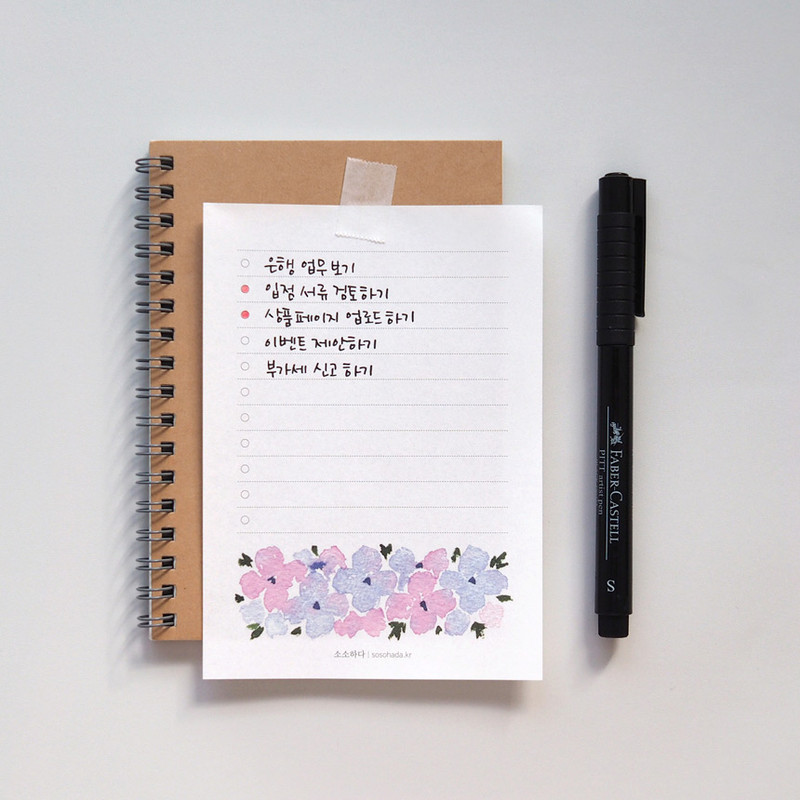 은행 업무보기
입점 서류 검토하기
상품페이지 업로드하기
이벤트 제안하기
부가세 신고하기
소소하다 | sosohada.kr
FABER-CASTELL
PITT artist pen
S